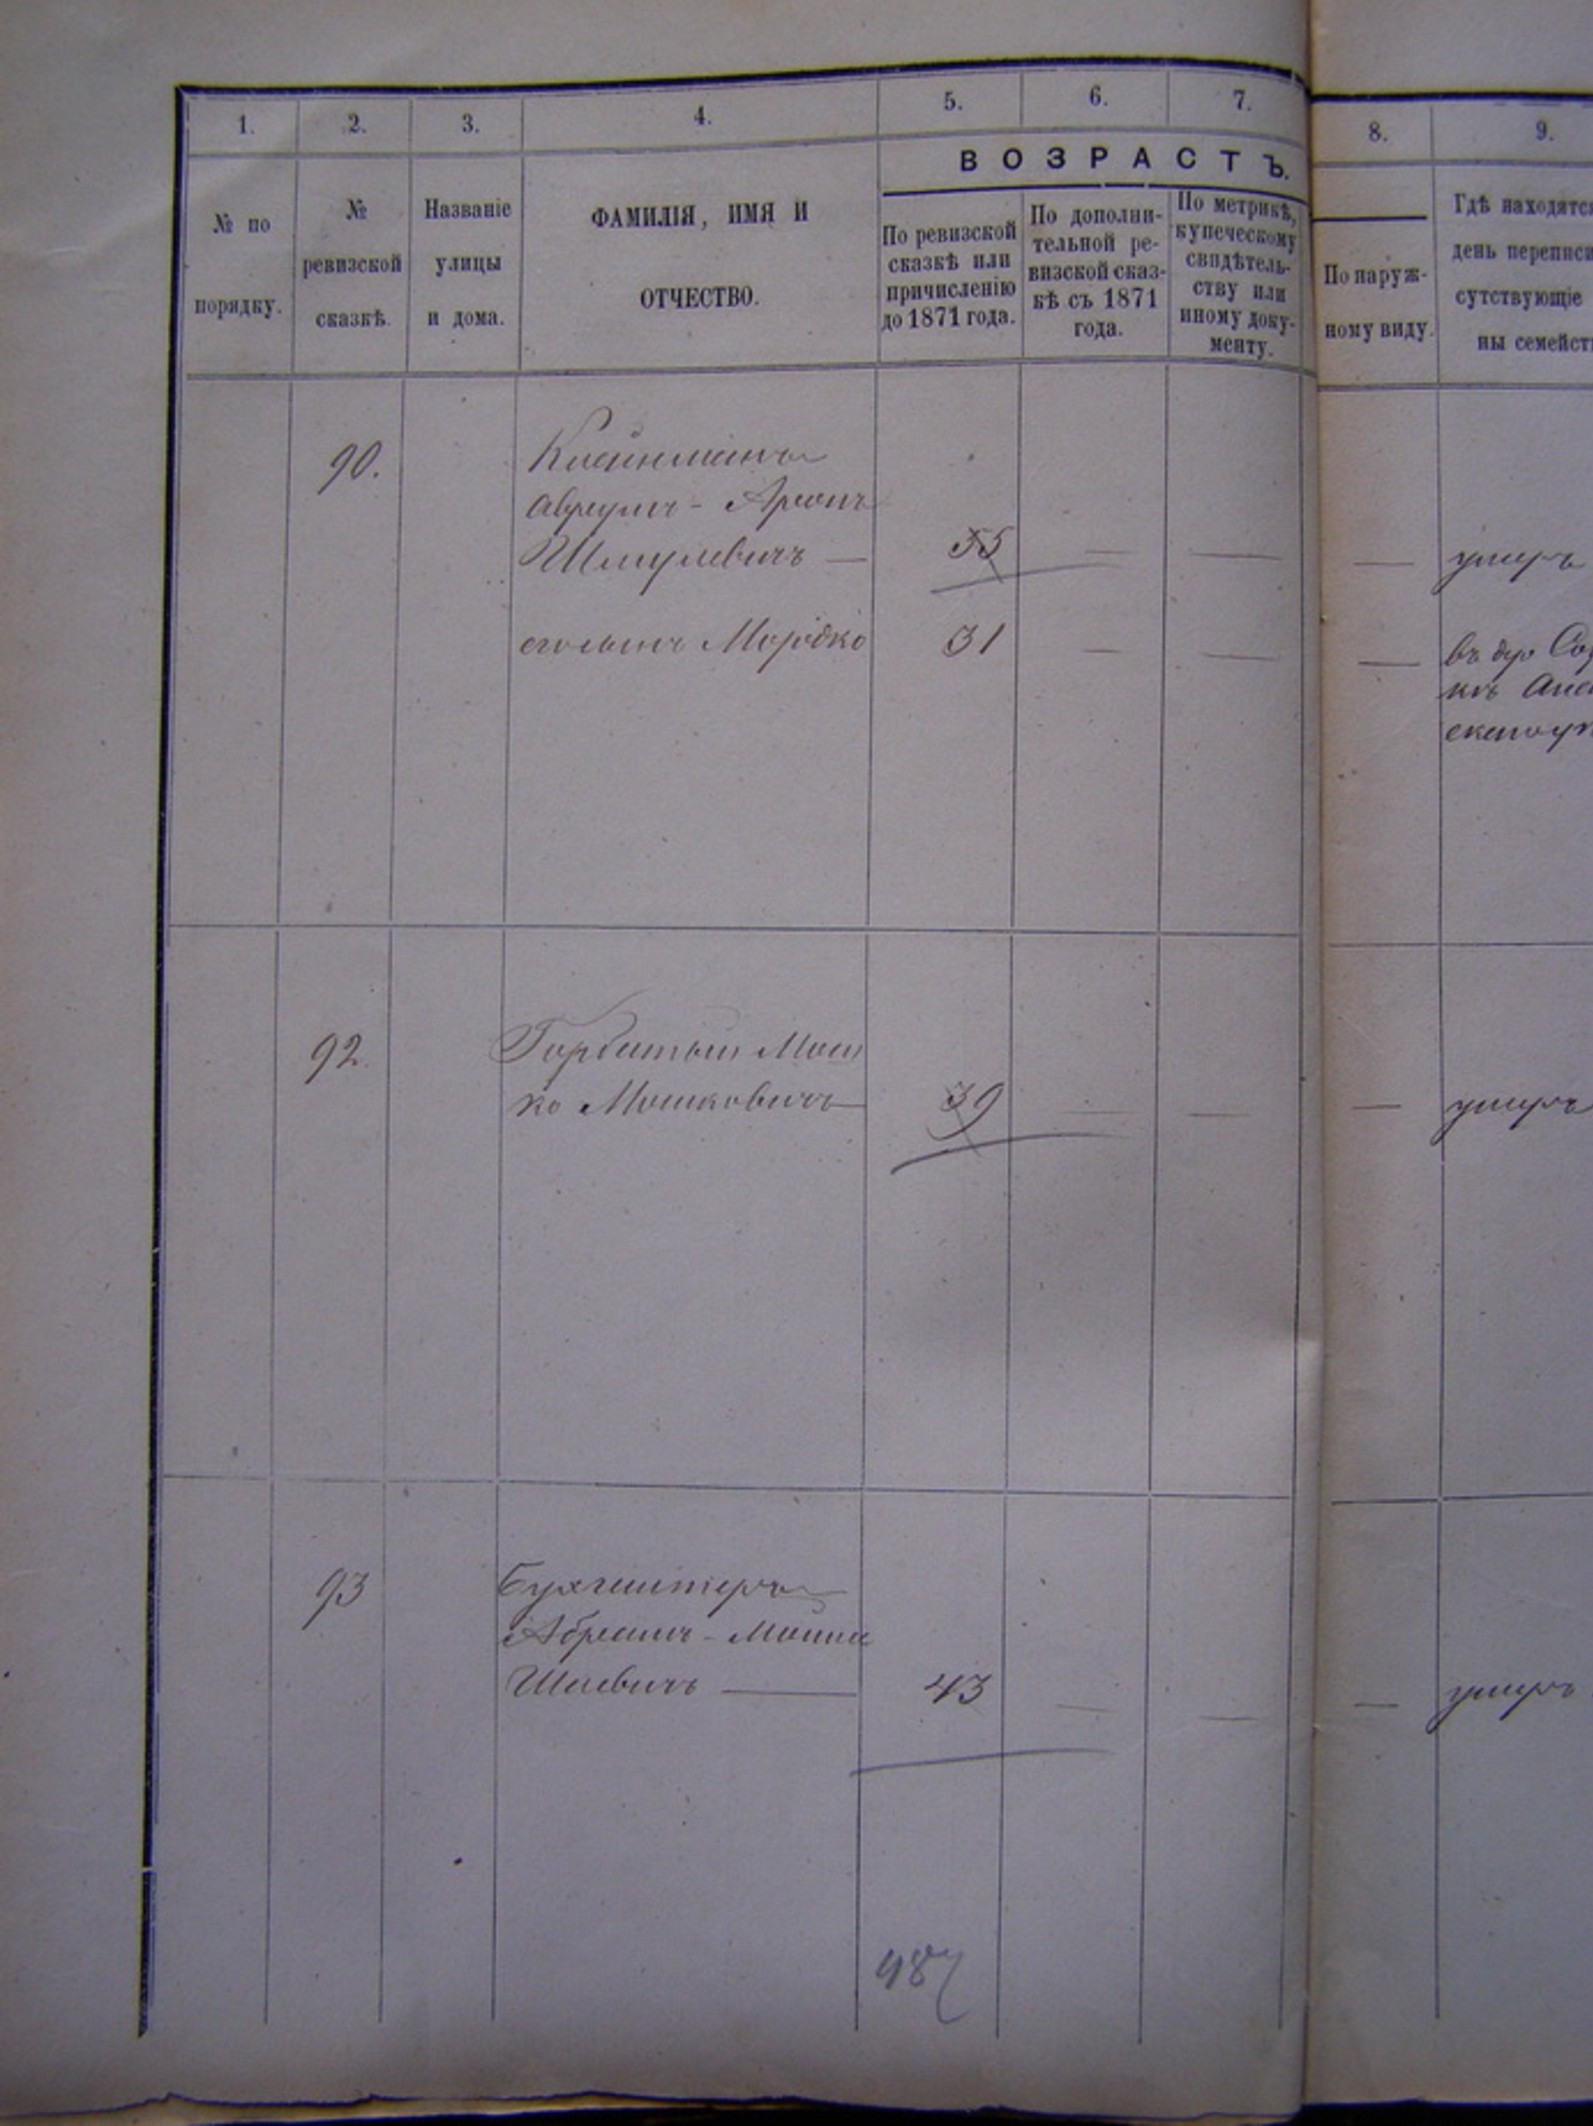 1. 2. 3. 4. 5. 6. 7. 8. 9.
ВОЗРАСТЪ.
№ по порядку.
№ ревизской сказкѣ.
Названіе улицы и дома.
ФАМИЛІЯ, ИМЯ И ОТЧЕСТВО.
По ревизской сказкѣ или причисленію до 1871 года.
По дополни-тельной ре-визской сказ-кѣ съ 1871 года.
По метрикѣ, купеческому свидѣтель-ству или иному доку-менту.
По наруж-ному виду.
Гдѣ находятся
день переписи
сутствующіе
ны семейст
90. Клейнманъ
Аврумъ - Аронъ
Шмулевичъ — 55 — — — умеръ
его сынъ Мордко 31 — — — въ
92. Горбатый Мош
ко Мошковичъ 39 — — — умеръ
93 Бухгалтеръ
Абрамъ - Мошка
Шаевичъ — 43 — — — умеръ
487